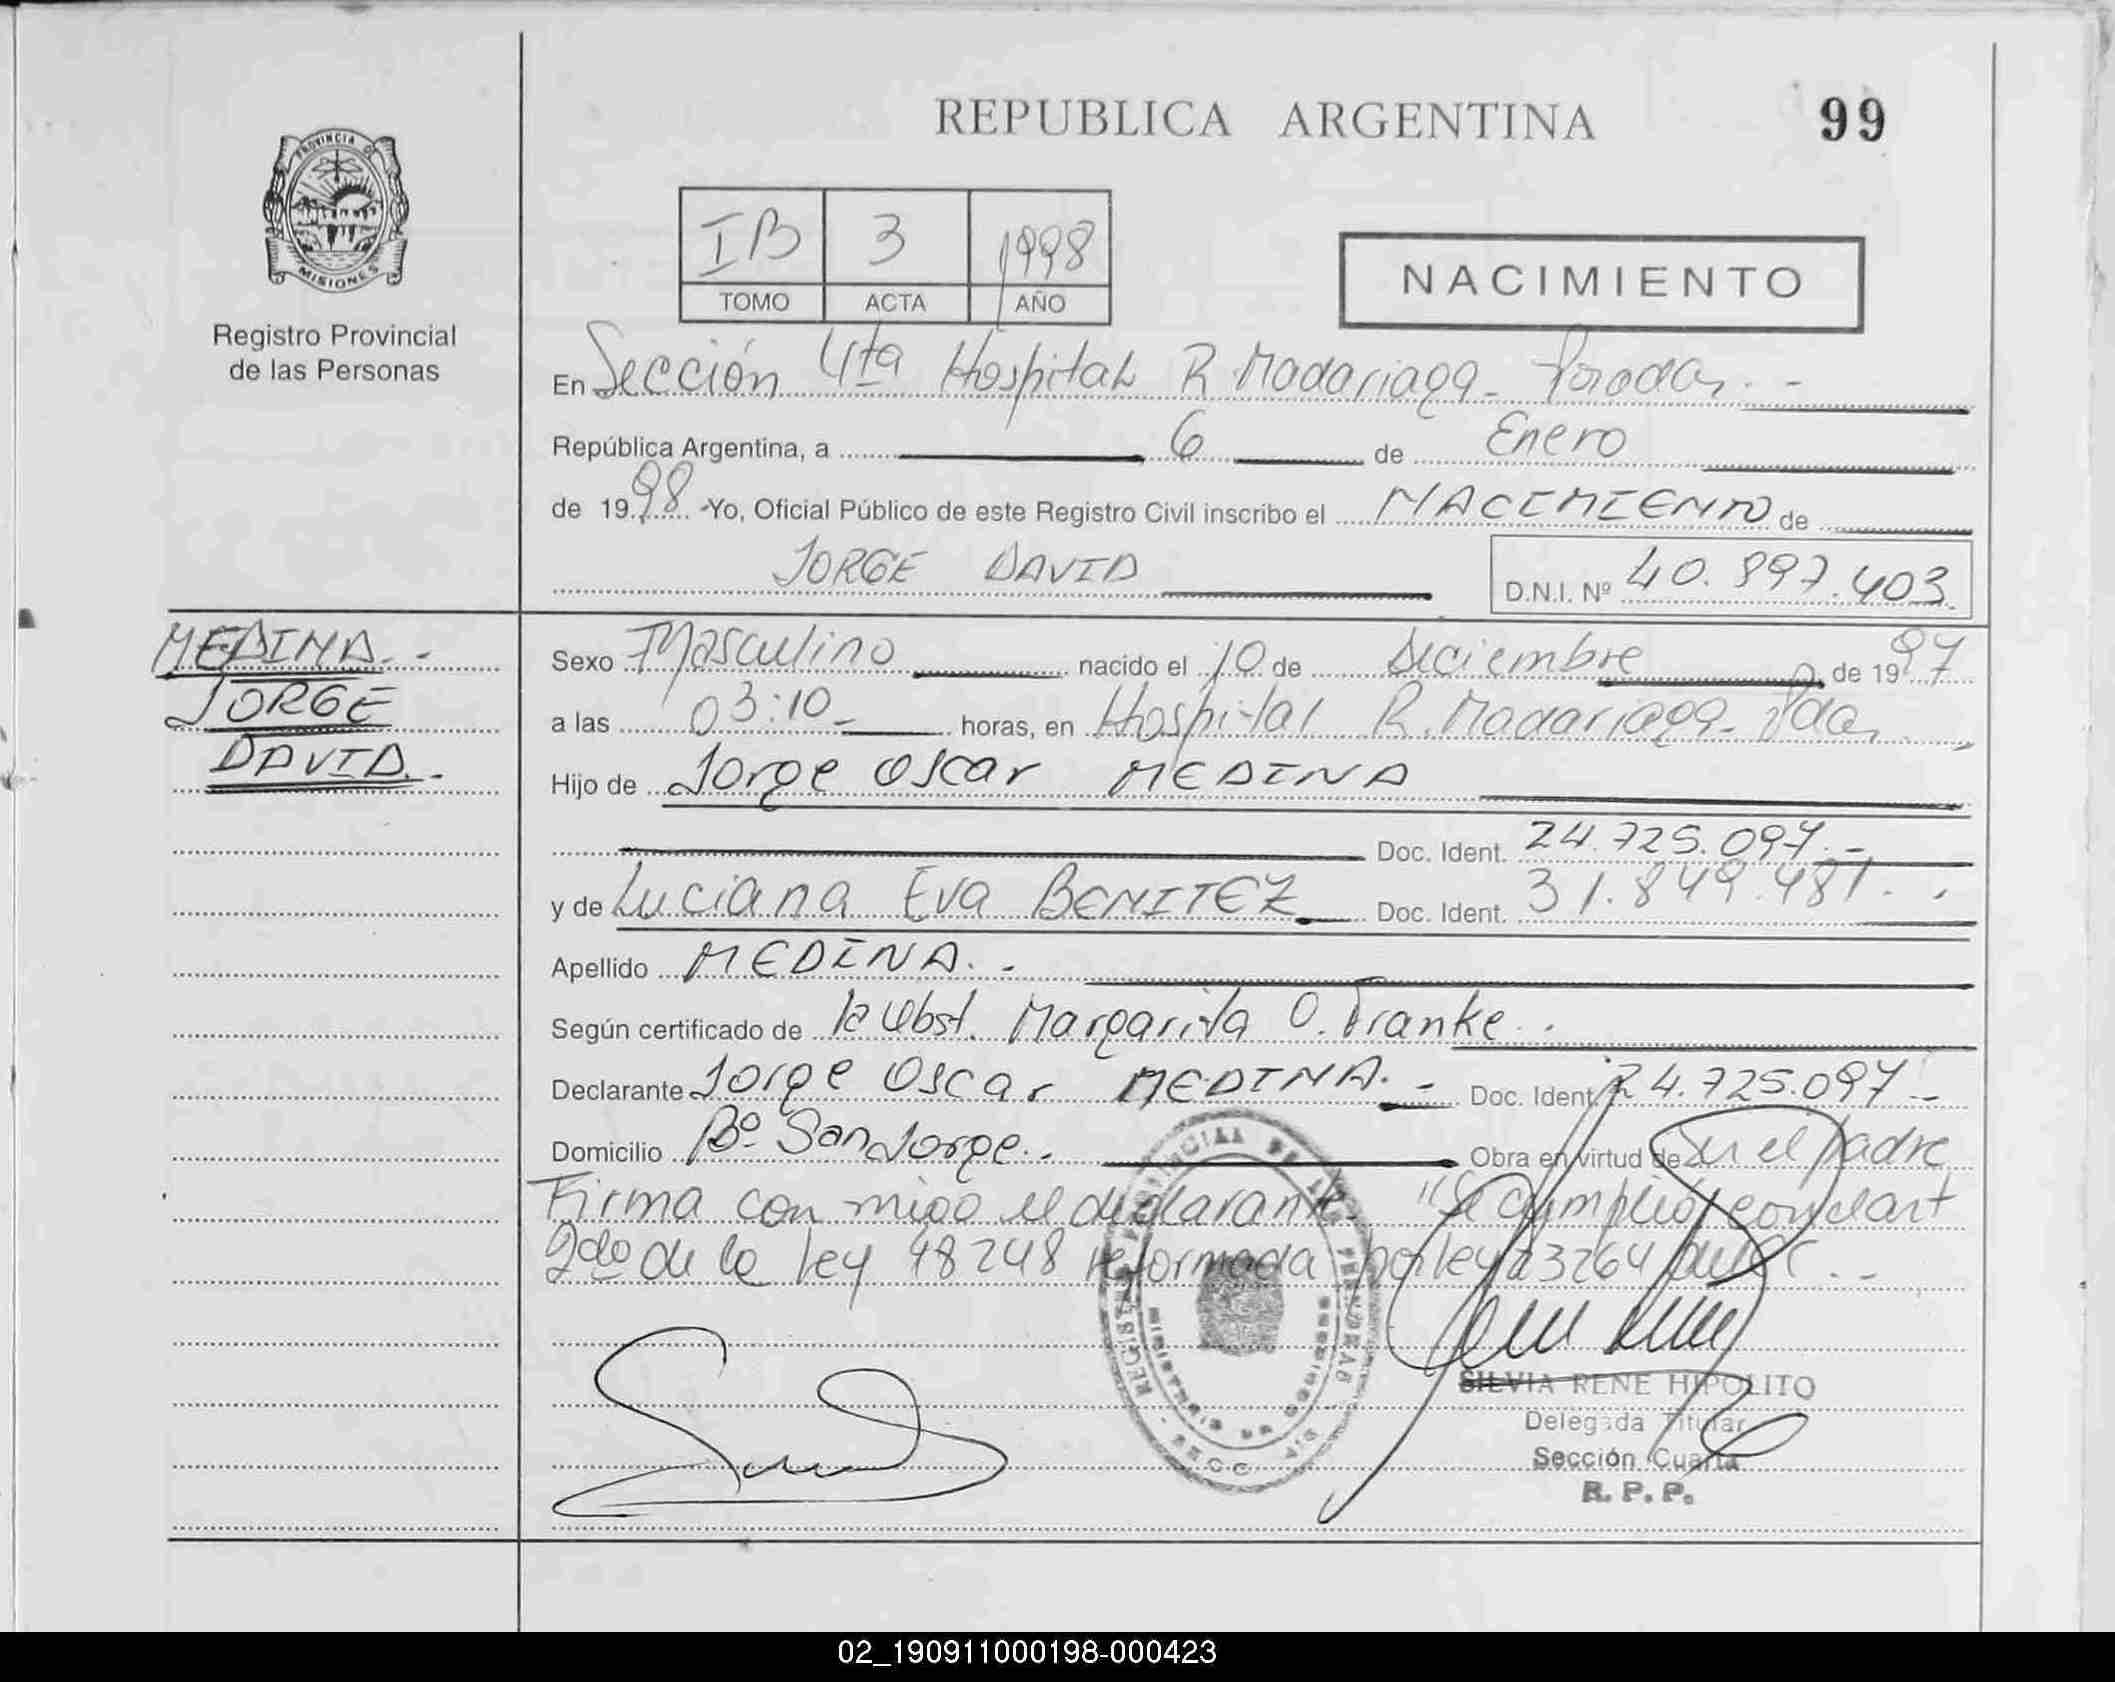 REPUBLICA ARGENTINA
99
PROVINCIA DE
MISIONES
Registro Provincial
de las Personas
IB 3 1998
TOMO ACTA AÑO
NACIMIENTO
En Sección 4ta Hospital R. Madariaga - Posadas. -
República Argentina, a 6 de Enero
de 1998. - Yo, Oficial Público de este Registro Civil inscribo el NACIMIENTO de
JORGE DAVID
D.N.I. Nº 40.897.403
MEDINA. -
JORGE
DAVID. -
Sexo Masculino nacido el 10 de diciembre de 1997
a las 03:10 - horas, en Hospital R. Madariaga - Pdas.
Hijo de Jorge Oscar MEDINA
Doc. Ident. 24.725.097. -
y de Luciana Eva BENITEZ Doc. Ident. 31.849.481. -
Apellido MEDINA. -
Según certificado de la Obst. Margarita O. Franke. .
Declarante Jorge Oscar MEDINA. - Doc. Ident. 24.725.097 -
Domicilio Bº San Jorge. . Obra en virtud de Ser el padre
Firma con migo el declarante. "Se cumplió con el art
2do de la ley 18248 reformada por ley 23264
REGISTRO PROVINCIAL DE LAS PERSONAS
MINISTERIO DE GOBIERNO
SILVIA RENE HIPOLITO
Delegada Titular
Sección Cuarta
R. P. P.
02_190911000198-000423